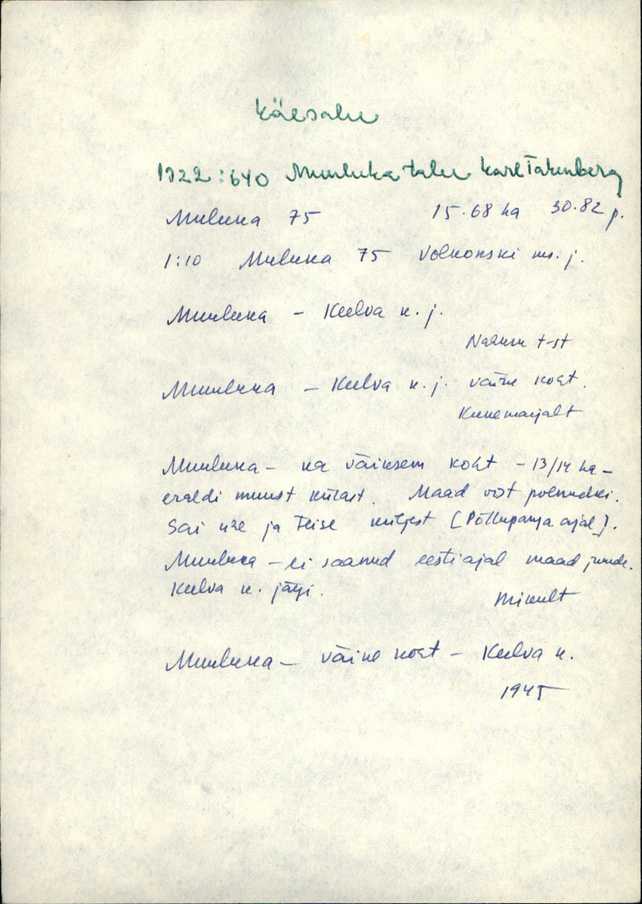 Käesalu
1922:640 Muuluka talu Karl Takenberg
Muluka 75 15.68 ha 30.82 p.
1:10 Muluka 75 Volkonski mr. j.
Muuluka – Keelva k. j.
t-st
Muuluka – Keelva k. j. väike koht.
Kunemarjalt
Muuluka – ka väiksem koht – 13/14 ha –
eraldi muust külast. Maad vist polnudki.
Sai ühe ja teise küljest (Põllupanga ajal).
Muuluka – ei saanud eestiajal maad juurde.
Keelva k. järgi.
Mikult
Muuluka – väike koht – Keelva k.
1945